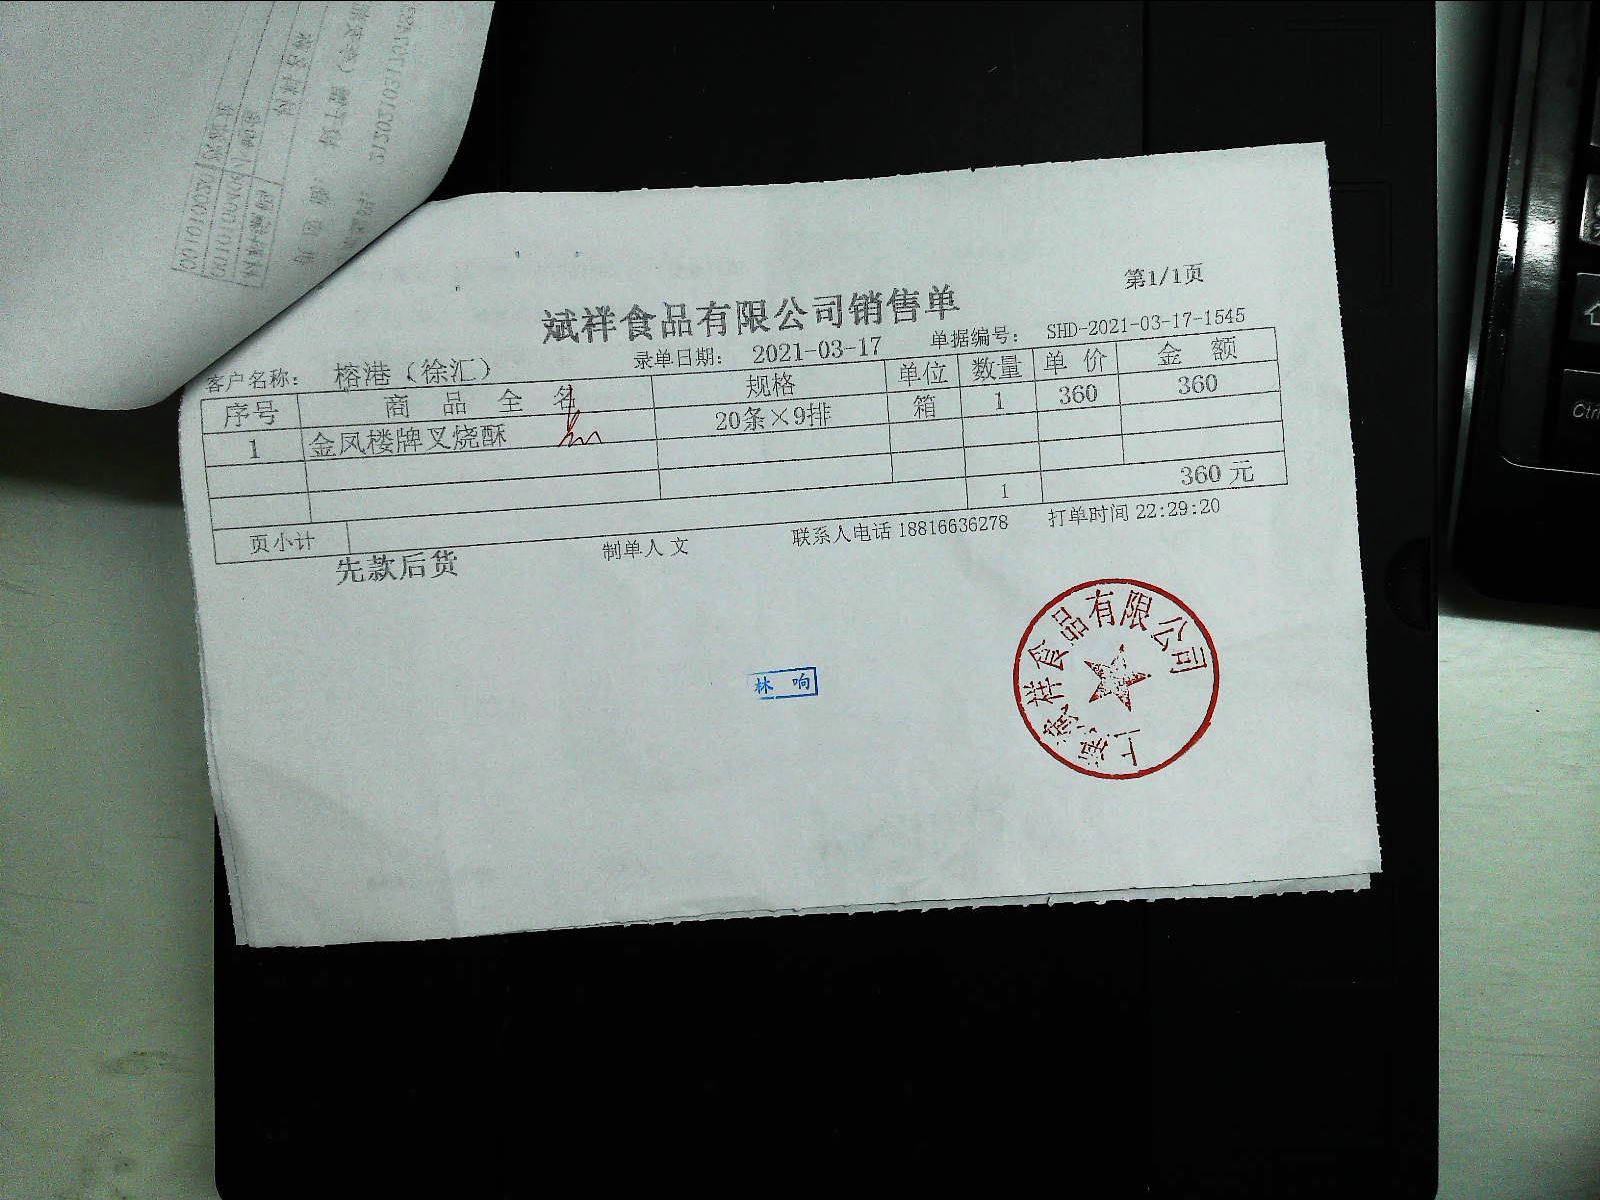 第1/1页
斌祥食品有限公司销售单
客户名称： 榕港（徐汇） 录单日期： 2021-03-17 单据编号： SHD-2021-03-17-1545
序号 商品全名 规格 单位 数量 单价 金额
1 金凤楼牌叉烧酥 20条×9排 箱 1 360 360
页小计 1 360元
先款后货 制单人 文 联系人电话 18816636278 打单时间 22:29:20
林响
祥食品有限公司
Ctrl